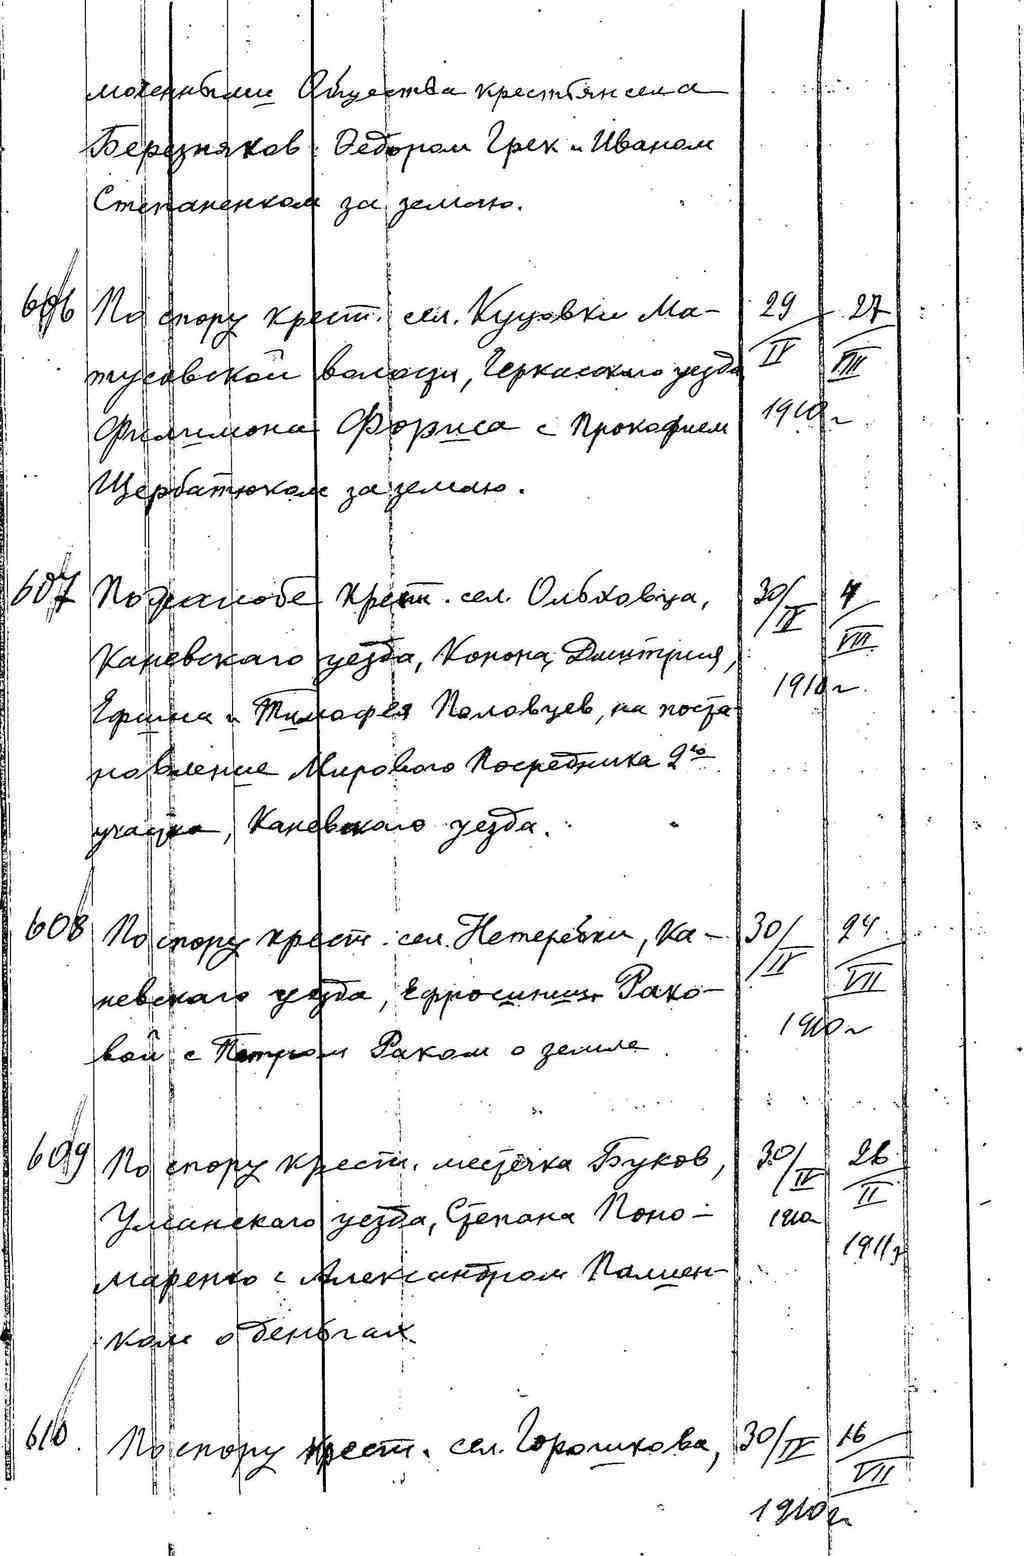 моченными Общества крестьян села
Березняков: Федором Грек и Иваном
Степаненком за землю.
606 По спору крест. сел. Куцовки Ма- 29/IV 27/VIII
тусовской волости, Черкасского уезда 1910 г
Филимона Фориса с Прокофием
Щербатюком за землю.
607 По жалобе крест. сел. Ольховца, 30/IV 4/VIII
Каневского уезда, Конона, Дмитрия, 1910 г.
Ефима и Тимофея Половцев, на поста-
новление Мирового Посредника 2го
участка, Каневского уезда.
608 По спору крест. сел. Нетеребки, Ка- 30/IV 24/VII
невского уезда, Ефросиньи Рако- 1910 г
вой с Петром Раком о земле.
609 По спору крест. местечка Буков, 30/IV 26/II
Уманского уезда, Степана Поно- 1910 1911 г
маренко с Александром Палиен-
ком о деньгах.
610. По спору крест. сел. Горошкова, 30/IV 16/VII
1910 г